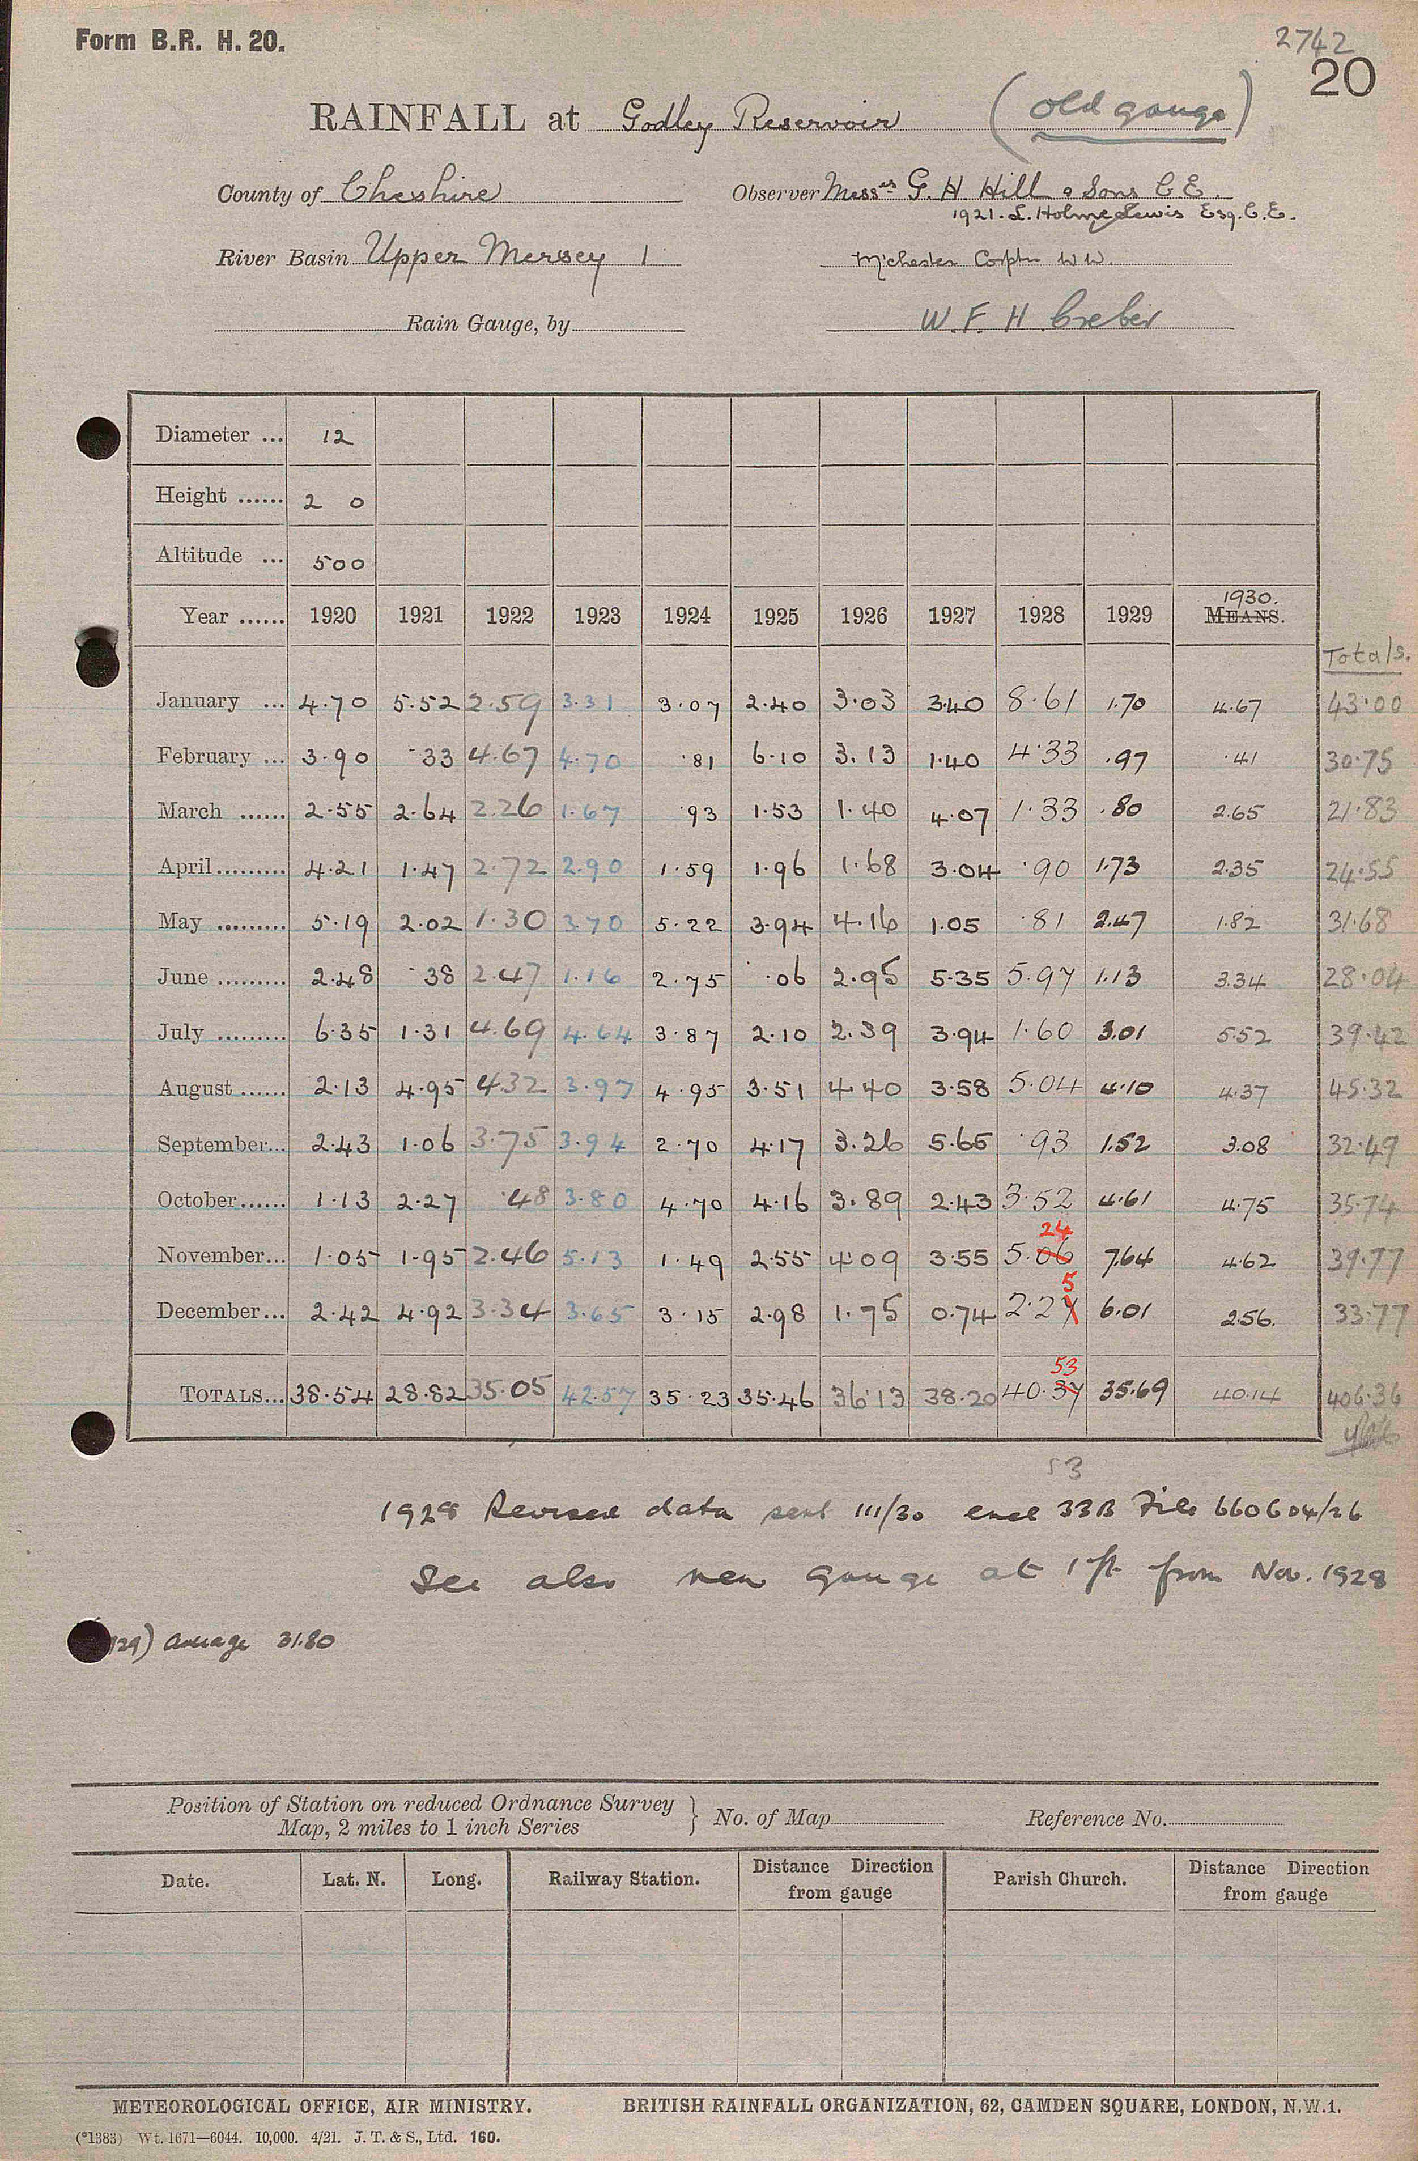 Form B.R. H. 20.
2742
20
RAINFALL at Godley Reservoir (old gauge)
County of Cheshire Observer Messrs G. H Hill & Sons C E.
1921. L. Holme Lewis Esq. C.E.
River Basin Upper Mersey 1 M'chester Corptn W W.
Rain Gauge, by W. F. H Creber
Diameter ... 12
Height ...... 2 0
Altitude ... 500
1930.
Year ...... 1920 1921 1922 1923 1924 1925 1926 1927 1928 1929 MEANS.
Totals.
January ... 4.70 5.52 2.59 3.31 3.07 2.40 3.03 3.40 8.61 1.70 4.67 43.00
February ... 3.90 .33 4.67 4.70 .81 6.10 3.13 1.40 4.33 .97 .41 30.75
March ...... 2.55 2.64 2.26 1.67 .93 1.53 1.40 4.07 1.33 .80 2.65 21.83
April......... 4.21 1.47 2.72 2.90 1.59 1.96 1.68 3.04 .90 1.73 2.35 24.55
May ......... 5.19 2.02 1.30 3.70 5.22 3.94 4.16 1.05 .81 2.47 1.82 31.68
June ......... 2.48 .38 2.47 1.16 2.75 .06 2.95 5.35 5.97 1.13 3.34 28.04
July ......... 6.35 1.31 4.69 4.64 3.87 2.10 2.39 3.94 1.60 3.01 5.52 39.42
August ...... 2.13 4.95 4.32 3.97 4.95 3.51 4.40 3.58 5.04 4.10 4.37 45.32
September... 2.43 1.06 3.75 3.94 2.70 4.17 3.26 5.65 .93 1.52 3.08 32.49
October...... 1.13 2.27 .48 3.80 4.70 4.16 3.89 2.43 3.52 4.61 4.75 35.74
24
November... 1.05 1.95 2.46 5.13 1.49 2.55 4.09 3.55 5.06 7.64 4.62 39.77
5
December... 2.42 4.92 3.34 3.65 3.15 2.98 1.75 0.74 2.27 6.01 2.56. 33.77
53
TOTALS... 38.54 28.82 35.05 42.57 35.23 35.46 36.13 38.20 40.37 35.69 40.14 406.36
53
1928 Revised data sent 111/30 encl 33B File 660604/26
See also new gauge at 1 ft from Nov. 1928
29) average 31.80
Position of Station on reduced Ordnance Survey
Map, 2 miles to 1 inch Series } No. of Map Reference No.
Date. Lat. N. Long. Railway Station. Distance Direction from gauge Parish Church. Distance Direction from gauge
METEOROLOGICAL OFFICE, AIR MINISTRY. BRITISH RAINFALL ORGANIZATION, 62, CAMDEN SQUARE, LONDON, N.W.1.
(*1383) Wt. 1671—6044. 10,000. 4/21. J. T. & S., Ltd. 160.